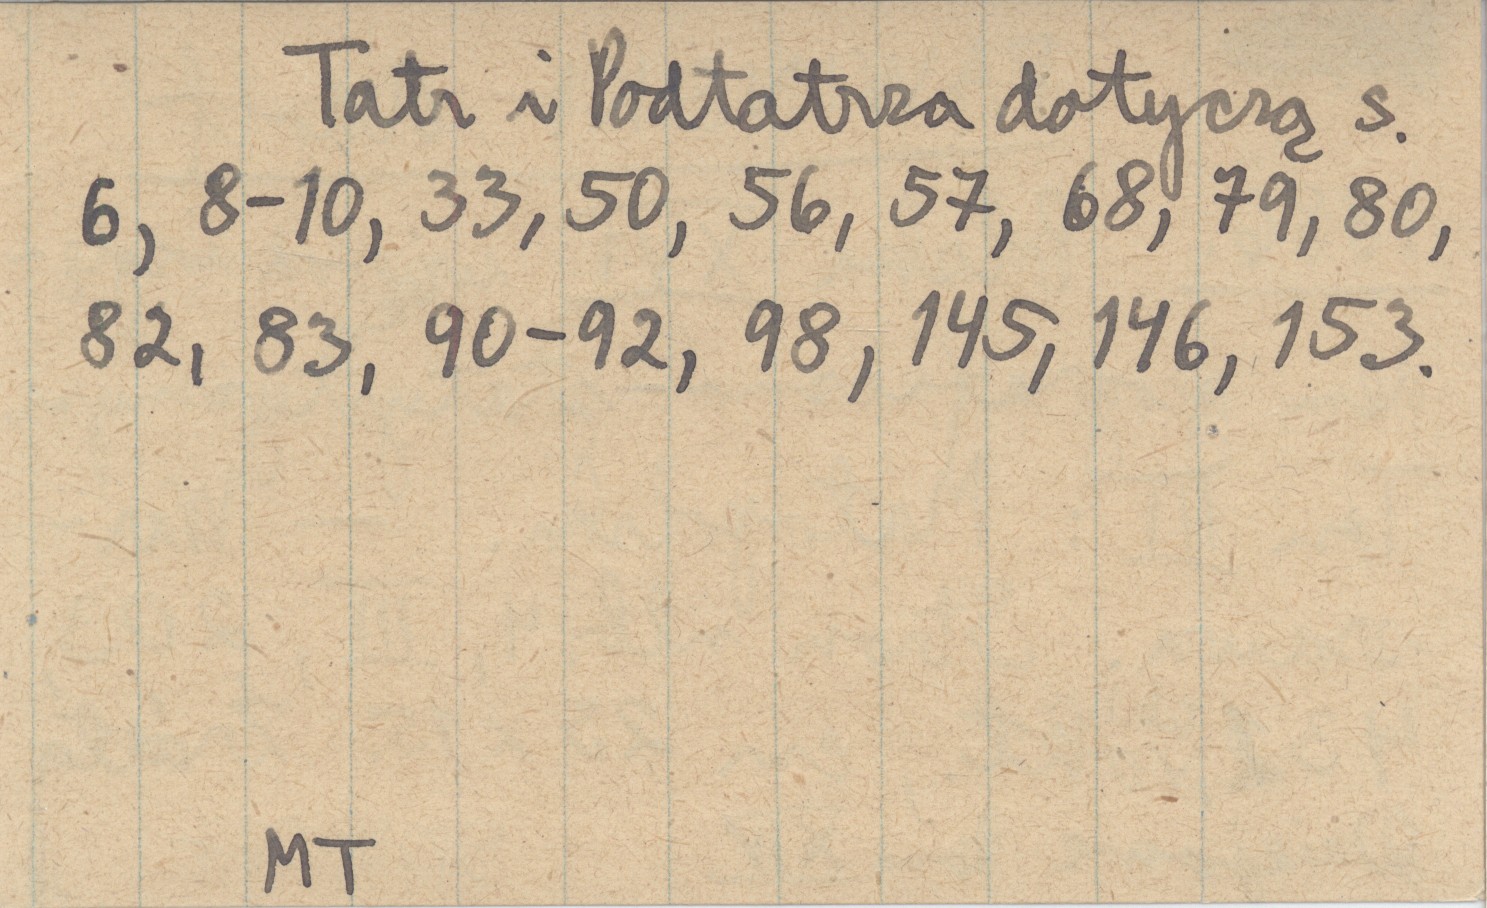 Tatr i Podtatrza dotyczą s.
6, 8-10, 33, 50, 56, 57, 68, 79, 80,
82, 83, 90-92, 98, 145, 146, 153.
MT